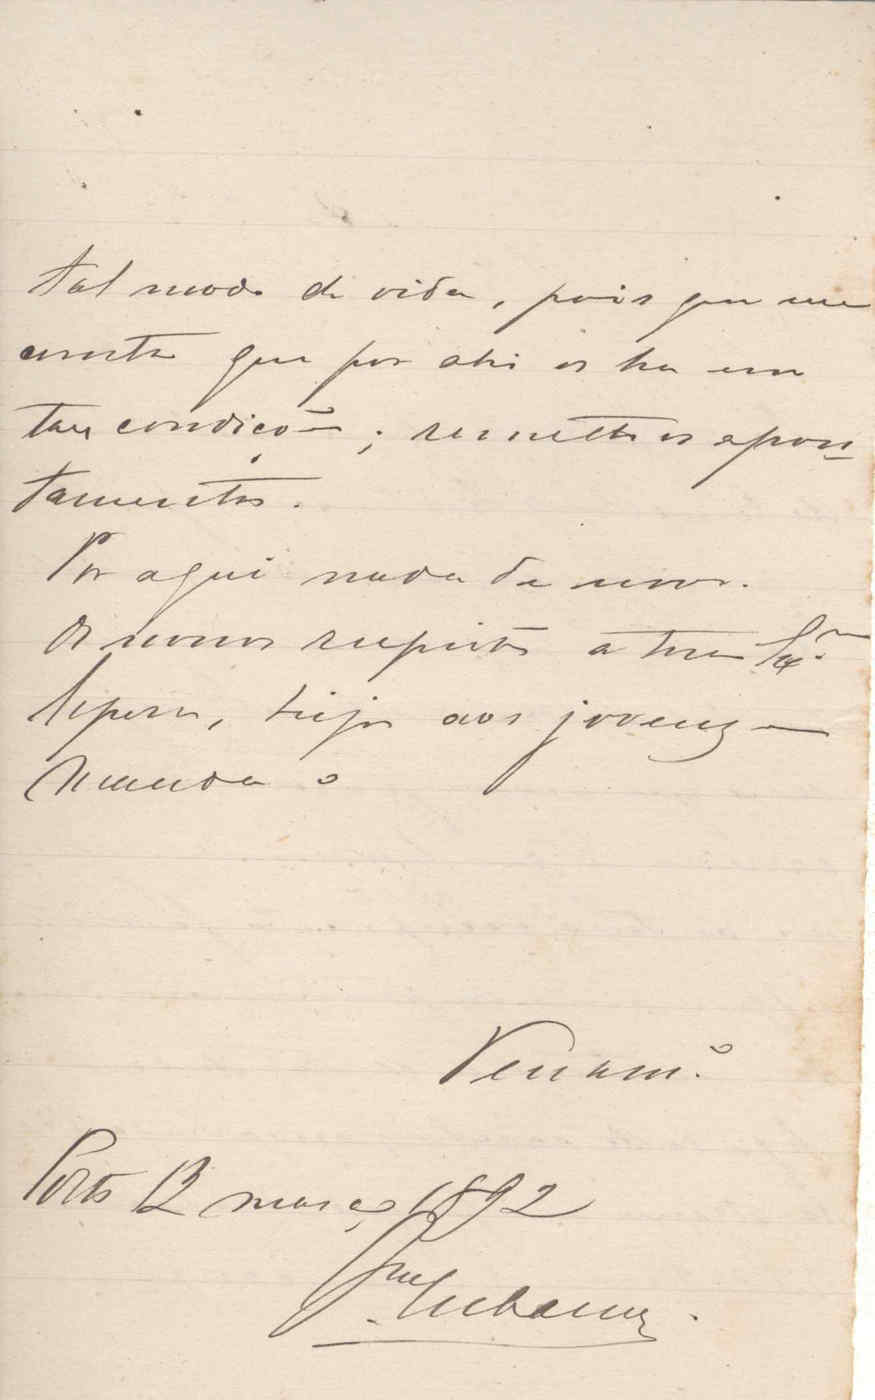 tal modo de vida, pois que me
consta que por ahi os ha em
taes condicões; remetto os apon-
tamentos.
Por aqui nada de novo.
Os nossos respeitos a tua
beijos aos jovens e
manda o
Porto 12 março 1892